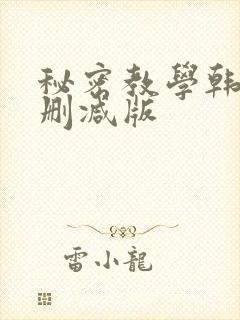 秘密教學韩
删减版
雷小龍